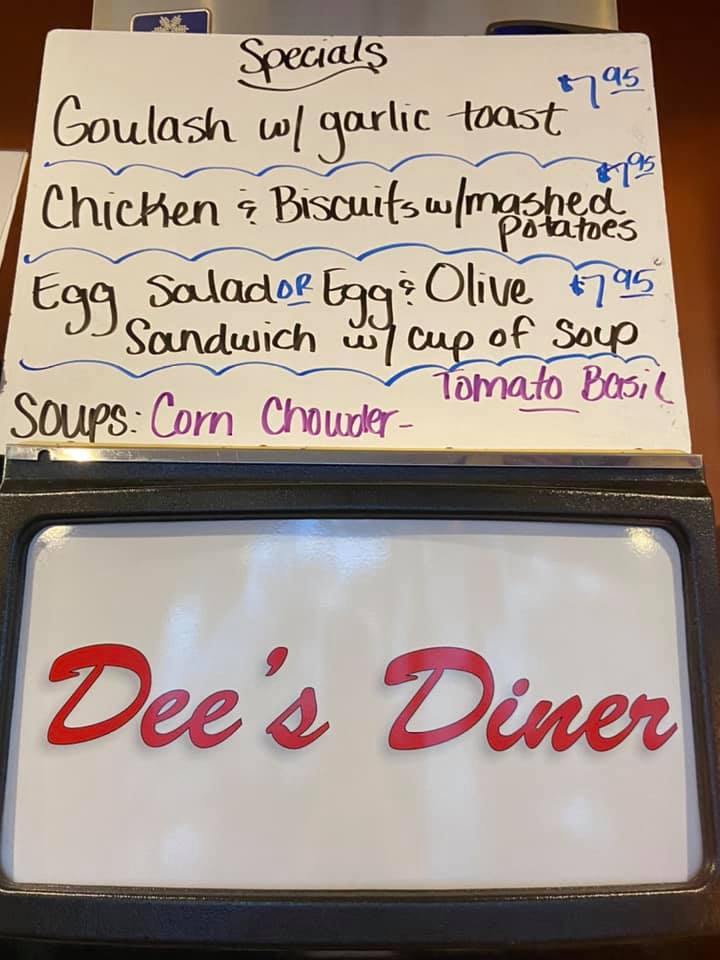 Specials
Goulash w/ garlic toast $7.95
Chicken & Biscuits w/mashed $7.95
potatoes
Egg Salad OR Egg & Olive $7.95
Sandwich w/ cup of soup
Soups: Corn Chowder- Tomato Basil
Dee's Diner